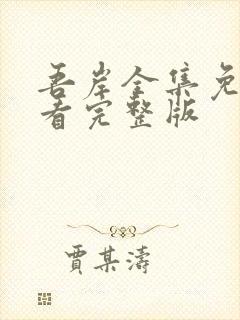 吾岸全集免
看完整版
賈某濤